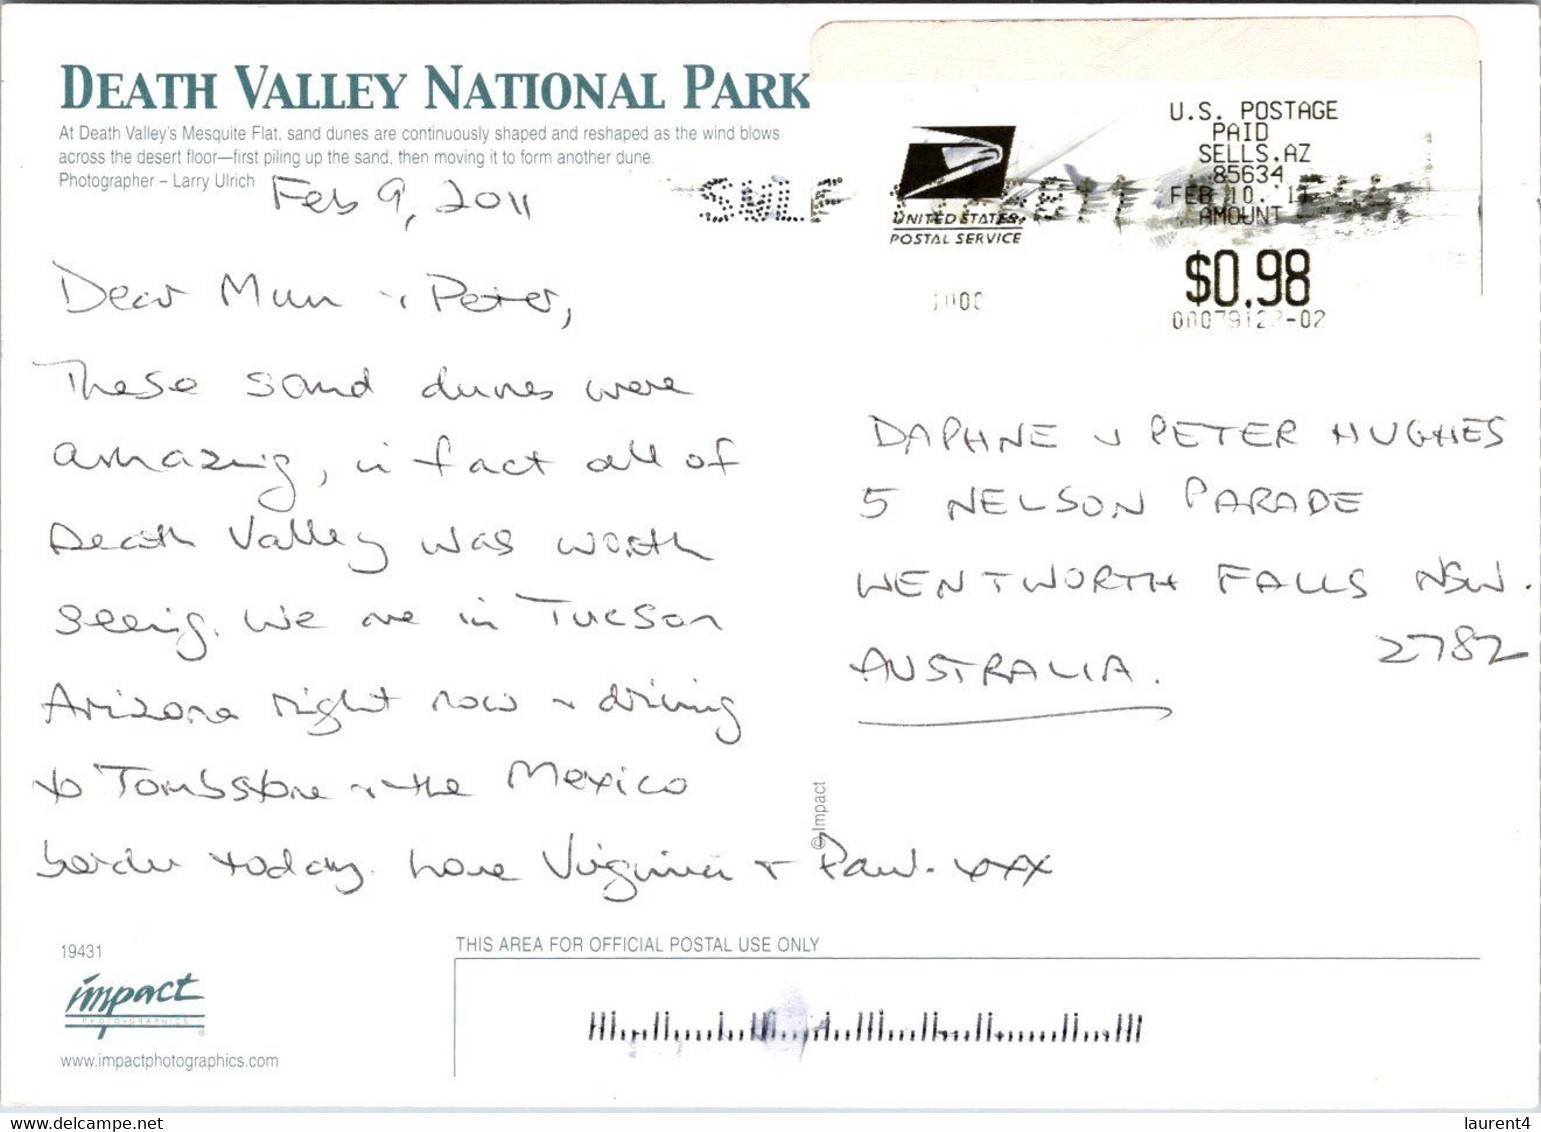 DEATH VALLEY NATIONAL PARK
At Death Valley's Mesquite Flat, sand dunes are continuously shaped and reshaped as the wind blows
across the desert floor—first piling up the sand, then moving it to form another dune.
Photographer – Larry Ulrich
Feb 9, 2011
Dear Mum + Peter,
These sand dunes were
amazing, in fact all of
Death Valley was worth
seeing. We are in Tucson
Arizona right now + driving
to Tombstone + the Mexico
border today. Love Virginia + Paul. xxx
UNITED STATES
POSTAL SERVICE
U.S. POSTAGE
PAID
SELLS, AZ
85634
FEB 10, '11
AMOUNT
$0.98
DAPHNE + PETER HUGHES
5 NELSON PARADE
WENTWORTH FALLS NSW.
2782
AUSTRALIA.
© Impact
19431
impact
PHOTOGRAPHICS
www.impactphotographics.com
THIS AREA FOR OFFICIAL POSTAL USE ONLY
www.delcampe.net
laurent4